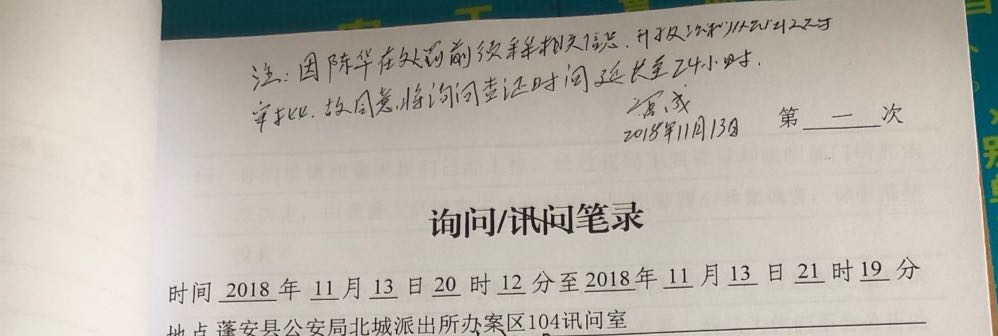 注：因陈华在处罚前须采集相关信息，并报法制以及县公安局
审批，故同意将询问查证时间延长至24小时。
2018年11月13日 第 一 次
询问/讯问笔录
时间 2018 年 11 月 13 日 20 时 12 分至 2018 年 11 月 13 日 21 时 19 分
地点 蓬安县公安局北城派出所办案区104讯问室